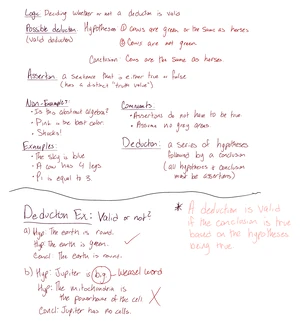 Logic: Deciding whether or not a deduction is valid
Possible deduction: Hypotheses ① Cows are green or the same as horses
(valid deduction) ② Cows are not green
Conclusion Cows are the same as horses
Assertion: a sentence that is either true or false
(has a distinct "truth value")
Non-Examples:
• Is this abstract algebra?
• Pink is the best color.
• Stacks!
Comments:
• Assertions do not have to be true
• Assume no grey areas
Examples:
• The sky is blue.
• A cow has 4 legs
• Pi is equal to 3.
Deduction: a series of hypotheses
followed by a conclusion
(all hypotheses & conclusion
must be assertions)
Deduction Ex: Valid or not?
a) Hyp: The earth is round.
Hyp: The earth is green.
Concl: The earth is round.
b) Hyp: Jupiter is big. Weasel word
Hyp: The mitochondria is
the powerhouse of the cell
Concl: Jupiter has no cells.
* A deduction is valid
if the conclusion is true
based on the hypotheses
being true